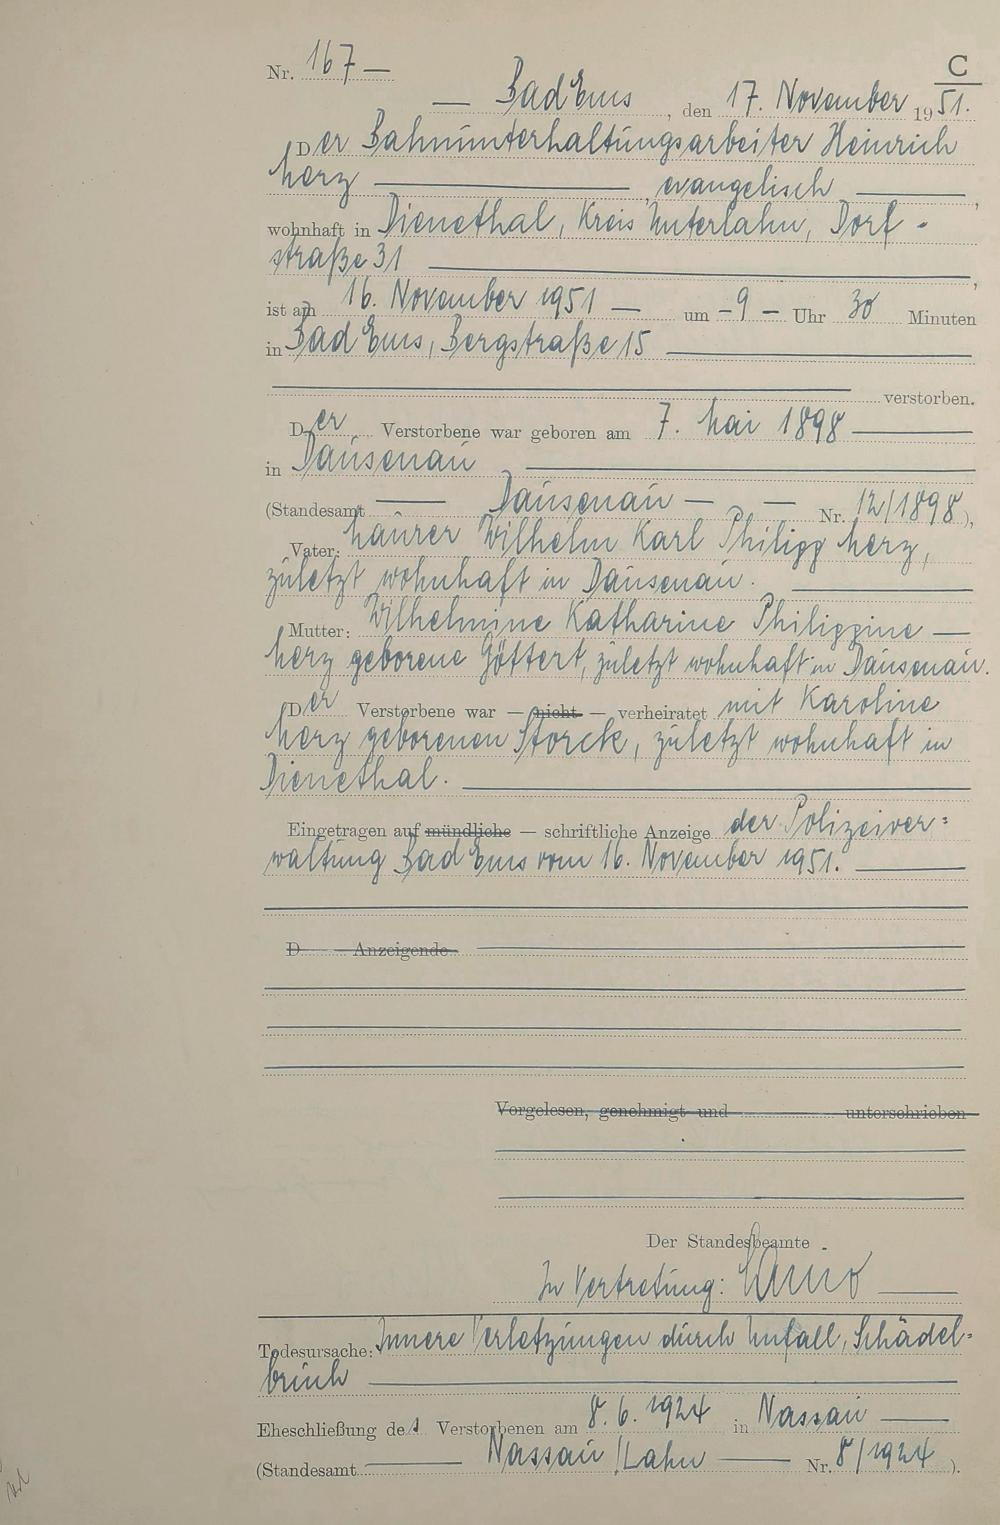 C
Nr. 167 —
— Bad Ems, den 17. November 1951.
Der Bahnunterhaltungsarbeiter Heinrich
Merz —, evangelisch —,
wohnhaft in Dienethal, Kreis Unterlahn, Dorf-
straße 31 —,
ist am 16. November 1951 — um - 9 - Uhr 30 Minuten
in Bad Ems, Bergstraße 15 —
— verstorben.
Der Verstorbene war geboren am 7. Mai 1898 —
in Dausenau —
(Standesamt — Dausenau — — Nr. 12/1898),
Vater: Maurer Wilhelm Karl Philipp Merz,
zuletzt wohnhaft in Dausenau. —
Mutter: Wilhelmine Katharine Philippine —
Merz geborene Göttert, zuletzt wohnhaft in Dausenau.
Der Verstorbene war — nicht — verheiratet mit Karoline
Merz geborenen Storck, zuletzt wohnhaft in
Dienethal. —
Eingetragen auf mündliche — schriftliche Anzeige der Polizeiver=
waltung Bad Ems vom 16. November 1951. —
D Anzeigende
Vorgelesen, genehmigt und unterschrieben
Der Standesbeamte
In Vertretung:
Todesursache: Innere Verletzungen durch Unfall, Schädel=
bruch —
Eheschließung des Verstorbenen am 8.6.1924 in Nassau —
(Standesamt — Nassau/Lahn — Nr. 8/1924).